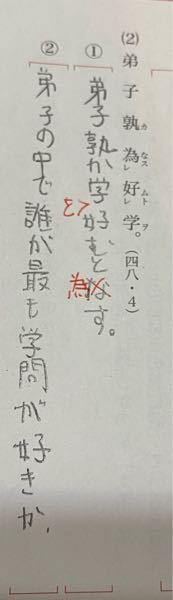 (2) 弟子孰カ為ナスレ好ムトレ学ヲ。(四八・4)
① 弟子孰か学好むとなす。
を> 為×
② 弟子の中で誰が最も学問が好きか。